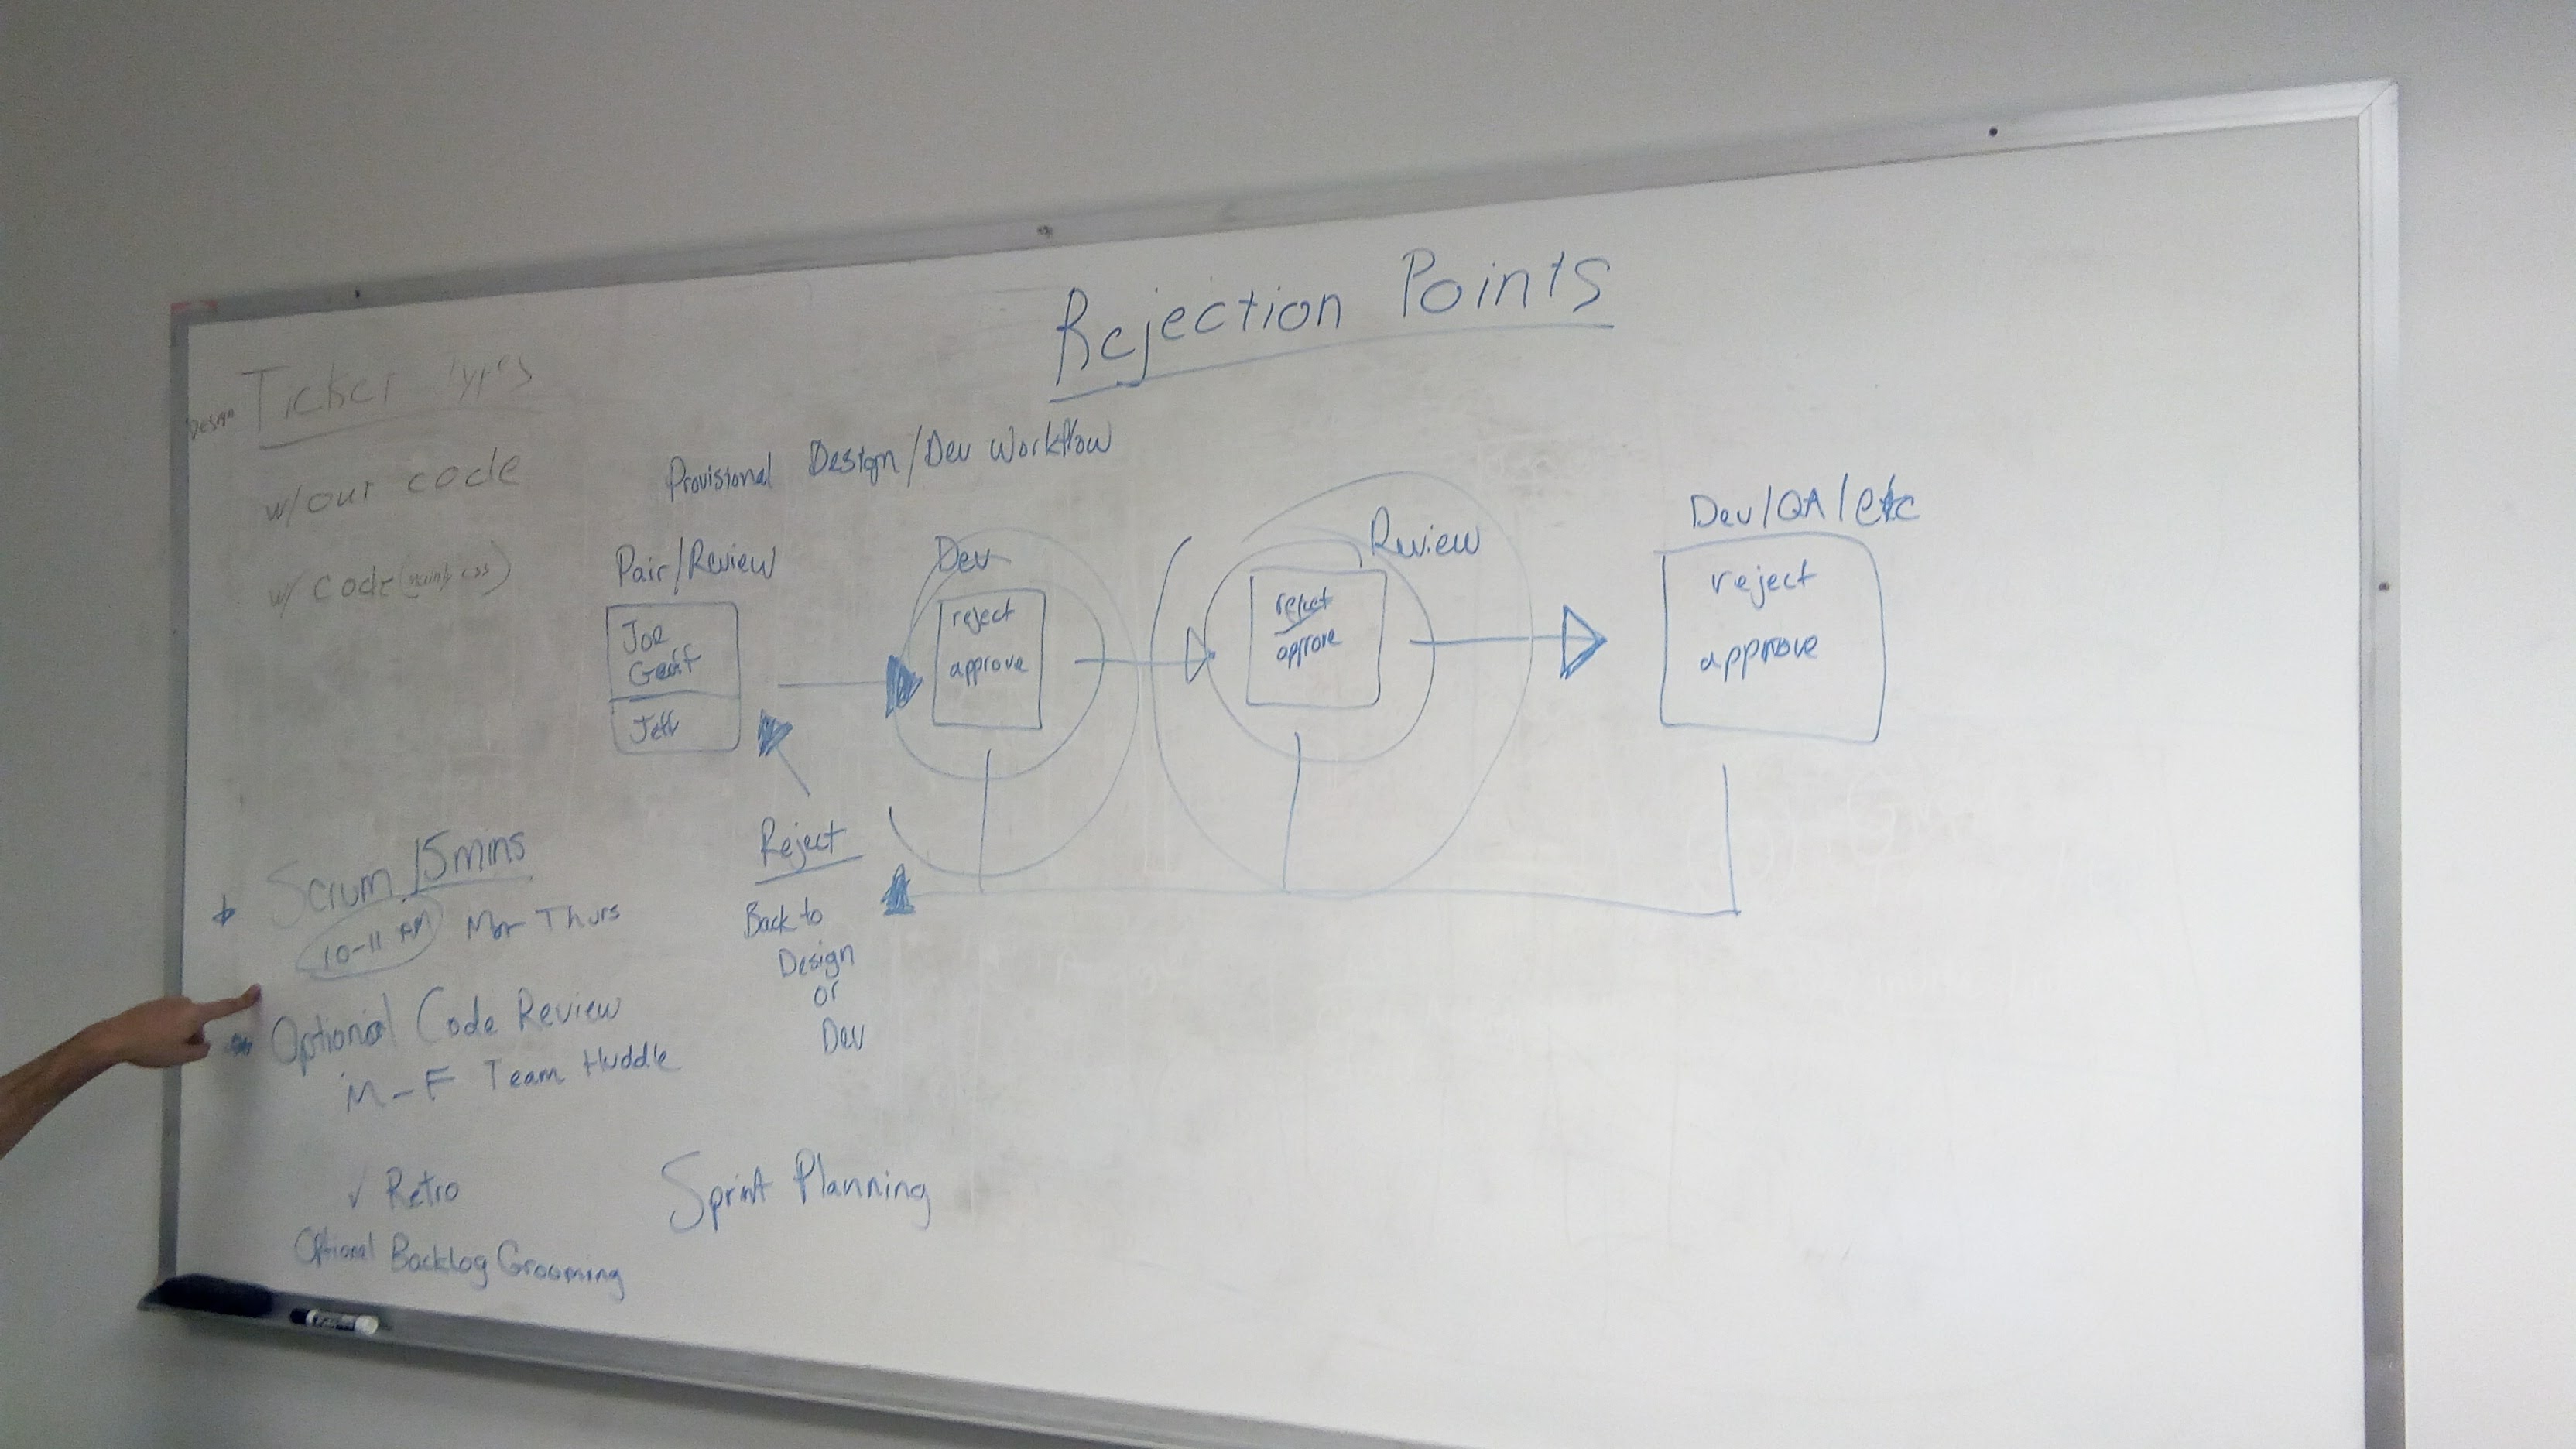 Rejection Points
Design Ticket Types
w/out code
w/ code (mainly css)
Provisional Design/Dev Workflow
Pair/Review
Joe
Geoff
Jeff
Dev
reject
approve
Review
reject
approve
Dev/QA/etc
reject
approve
Reject
Back to
Design
or
Dev
Scrum 15mins
10-11 AM Mon-Thurs
Optional Code Review
M-F Team Huddle
✓ Retro
Optional Backlog Grooming
Sprint Planning